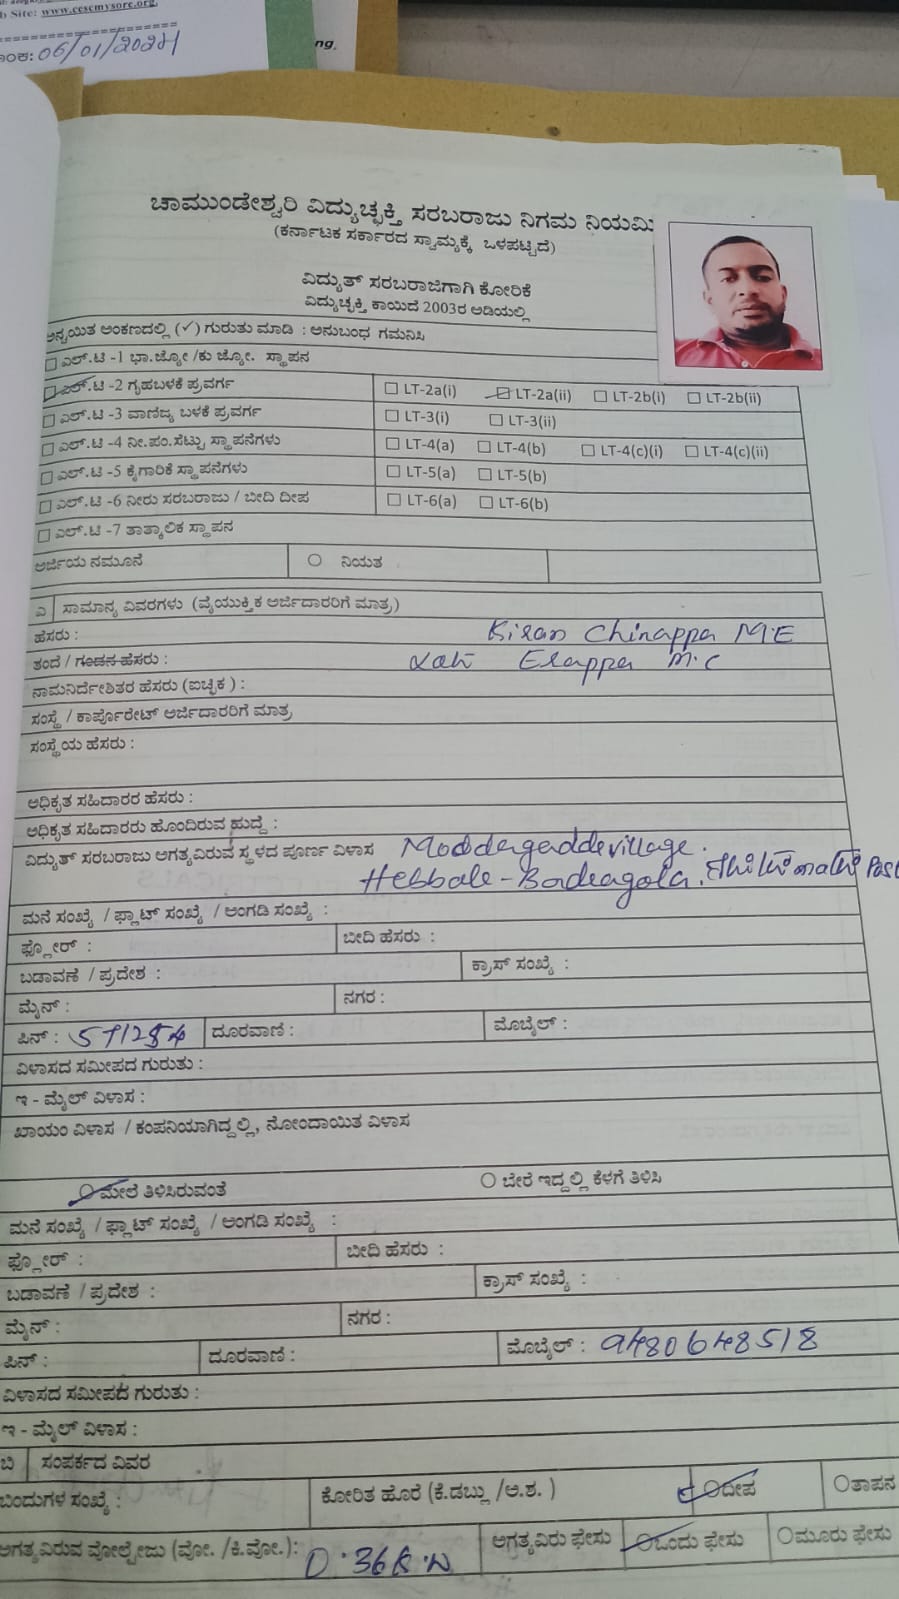 b Site: www.cescmysore.org,
ಾಂಕ: 06/01/2024
ng,
ಚಾಮುಂಡೇಶ್ವರಿ ವಿದ್ಯುಚ್ಛಕ್ತಿ ಸರಬರಾಜು ನಿಗಮ ನಿಯಮಿ
(ಕರ್ನಾಟಕ ಸರ್ಕಾರದ ಸ್ವಾಮ್ಯಕ್ಕೆ ಒಳಪಟ್ಟಿದೆ)
ವಿದ್ಯುತ್ ಸರಬರಾಜಿಗಾಗಿ ಕೋರಿಕೆ
ವಿದ್ಯುಚ್ಛಕ್ತಿ ಕಾಯಿದೆ 2003ರ ಅಡಿಯಲ್ಲಿ
ಅನ್ವಯಿತ ಅಂಕಣದಲ್ಲಿ (✓) ಗುರುತು ಮಾಡಿ : ಅನುಬಂಧ ಗಮನಿಸಿ
☐ ಎಲ್.ಟಿ -1 ಭಾ.ಜ್ಯೋ /ಕು ಜ್ಯೋ. ಸ್ಥಾಪನ
☐ ಎಲ್.ಟಿ -2 ಗೃಹಬಳಕೆ ಪ್ರವರ್ಗ ☐ LT-2a(i) ☐ LT-2a(ii) ☐ LT-2b(i) ☐ LT-2b(ii)
☐ ಎಲ್.ಟಿ -3 ವಾಣಿಜ್ಯ ಬಳಕೆ ಪ್ರವರ್ಗ ☐ LT-3(i) ☐ LT-3(ii)
☐ ಎಲ್.ಟಿ -4 ನೀ.ಪಂ.ಸೆಟ್ಟು ಸ್ಥಾಪನೆಗಳು ☐ LT-4(a) ☐ LT-4(b) ☐ LT-4(c)(i) ☐ LT-4(c)(ii)
☐ ಎಲ್.ಟಿ -5 ಕೈಗಾರಿಕೆ ಸ್ಥಾಪನೆಗಳು ☐ LT-5(a) ☐ LT-5(b)
☐ ಎಲ್.ಟಿ -6 ನೀರು ಸರಬರಾಜು / ಬೀದಿ ದೀಪ ☐ LT-6(a) ☐ LT-6(b)
☐ ಎಲ್.ಟಿ -7 ತಾತ್ಕಾಲಿಕ ಸ್ಥಾಪನ
ಅರ್ಜಿಯ ನಮೂನೆ ○ ನಿಯತ
ಎ ಸಾಮಾನ್ಯ ವಿವರಗಳು (ವೈಯುಕ್ತಿಕ ಅರ್ಜಿದಾರರಿಗೆ ಮಾತ್ರ)
ಹೆಸರು : Kiran Chinappa M.E
ತಂದೆ / ಗಂಡನ ಹೆಸರು : Late Erappa M.C
ನಾಮನಿರ್ದೇಶಿತರ ಹೆಸರು (ಐಚ್ಛಿಕ ) :
ಸಂಸ್ಥೆ / ಕಾರ್ಪೊರೇಟ್ ಅರ್ಜಿದಾರರಿಗೆ ಮಾತ್ರ
ಸಂಸ್ಥೆಯ ಹೆಸರು :
ಅಧಿಕೃತ ಸಹಿದಾರರ ಹೆಸರು :
ಅಧಿಕೃತ ಸಹಿದಾರರು ಹೊಂದಿರುವ ಹುದ್ದೆ :
ವಿದ್ಯುತ್ ಸರಬರಾಜು ಅಗತ್ಯವಿರುವ ಸ್ಥಳದ ಪೂರ್ಣ ವಿಳಾಸ Moddagadde village.
Hebbale - Post
ಮನೆ ಸಂಖ್ಯೆ / ಫ್ಲಾಟ್ ಸಂಖ್ಯೆ / ಅಂಗಡಿ ಸಂಖ್ಯೆ :
ಫ್ಲೋರ್ : ಬೀದಿ ಹೆಸರು :
ಬಡಾವಣೆ / ಪ್ರದೇಶ : ಕ್ರಾಸ್ ಸಂಖ್ಯೆ :
ಮೈನ್ : ನಗರ :
ಪಿನ್ : 571254 ದೂರವಾಣಿ : ಮೊಬೈಲ್ :
ವಿಳಾಸದ ಸಮೀಪದ ಗುರುತು :
ಇ - ಮೈಲ್ ವಿಳಾಸ :
ಖಾಯಂ ವಿಳಾಸ / ಕಂಪನಿಯಾಗಿದ್ದಲ್ಲಿ, ನೋಂದಾಯಿತ ವಿಳಾಸ
○ ಮೇಲೆ ತಿಳಿಸಿರುವಂತೆ ○ ಬೇರೆ ಇದ್ದಲ್ಲಿ ಕೆಳಗೆ ತಿಳಿಸಿ
ಮನೆ ಸಂಖ್ಯೆ / ಫ್ಲಾಟ್ ಸಂಖ್ಯೆ / ಅಂಗಡಿ ಸಂಖ್ಯೆ :
ಫ್ಲೋರ್ : ಬೀದಿ ಹೆಸರು :
ಬಡಾವಣೆ / ಪ್ರದೇಶ : ಕ್ರಾಸ್ ಸಂಖ್ಯೆ :
ಮೈನ್ : ನಗರ :
ಪಿನ್ : ದೂರವಾಣಿ : ಮೊಬೈಲ್ : 9480648518
ವಿಳಾಸದ ಸಮೀಪದ ಗುರುತು :
ಇ - ಮೈಲ್ ವಿಳಾಸ :
ಬಿ ಸಂಪರ್ಕದ ವಿವರ
ಬಿಂದುಗಳ ಸಂಖ್ಯೆ : ಕೋರಿತ ಹೊರೆ (ಕೆ.ಡಬ್ಲು /ಅ.ಶ. ) ○ದೀಪ ○ತಾಪನ
ಅಗತ್ಯವಿರುವ ವೋಲ್ಟೇಜು (ವೋ. /ಕಿ.ವೋ.): 0.36K.W ಅಗತ್ಯವಿರು ಫೇಸು ○ಒಂದು ಫೇಸು ○ಮೂರು ಫೇಸು